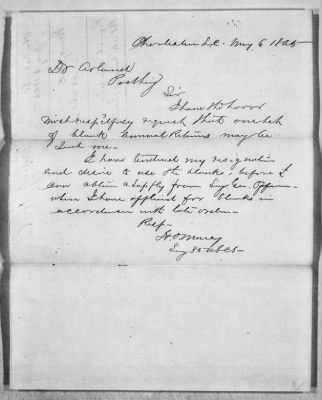 Charleston S.C. May 6 1865
Dr
Sir
I have the honor
most respectfully request that one set
of blank Annual Returns may be
sent me
I have tendered my resignation
and desire to use the blanks, before I
can obtain a supply from Surg Gen. Office
where I have applied for blanks in
accordance with late orders
Resp
Surg 35 USCT